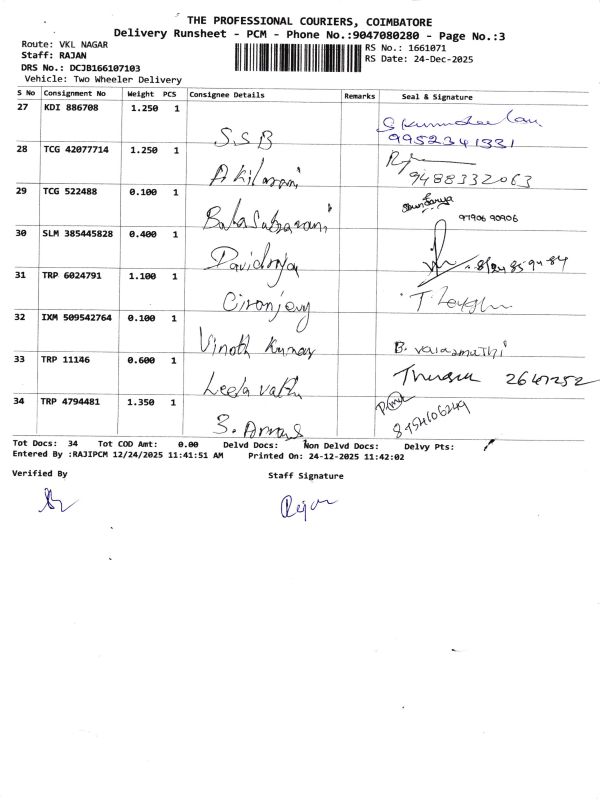 THE PROFESSIONAL COURIERS, COIMBATORE
Delivery Runsheet - PCM - Phone No.:9047080280 - Page No.:3
Route: VKL NAGAR
RS No.: 1661071
Staff: RAJAN
RS Date: 24-Dec-2025
DRS No.: DCJB166107103
Vehicle: Two Wheeler Delivery
S No Consignment No Weight PCS Consignee Details Remarks Seal & Signature
27 KDI 886708 1.250 1
SSB
9952341331
28 TCG 42077714 1.250 1
Akilarani
9488332063
29 TCG 522488 0.100 1
97906 90906
30 SLM 385445828 0.400 1
31 TRP 6024791 1.100 1
32 IXM 509542764 0.100 1
Vinoth Kumar
33 TRP 11146 0.600 1
2647252
34 TRP 4794481 1.350 1
Tot Docs: 34 Tot COD Amt: 0.00 Delvd Docs: Non Delvd Docs: Delvy Pts:
Entered By :RAJIPCM 12/24/2025 11:41:51 AM Printed On: 24-12-2025 11:42:02
Verified By
Staff Signature
Rajan